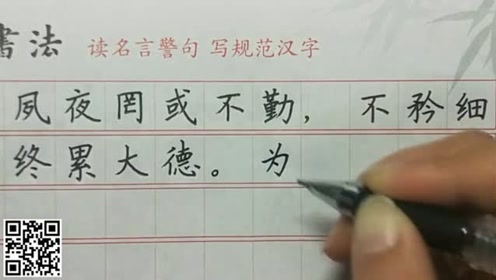 書法 读名言警句 写规范汉字
夙夜罔或不勤，不矜细
终累大德。为